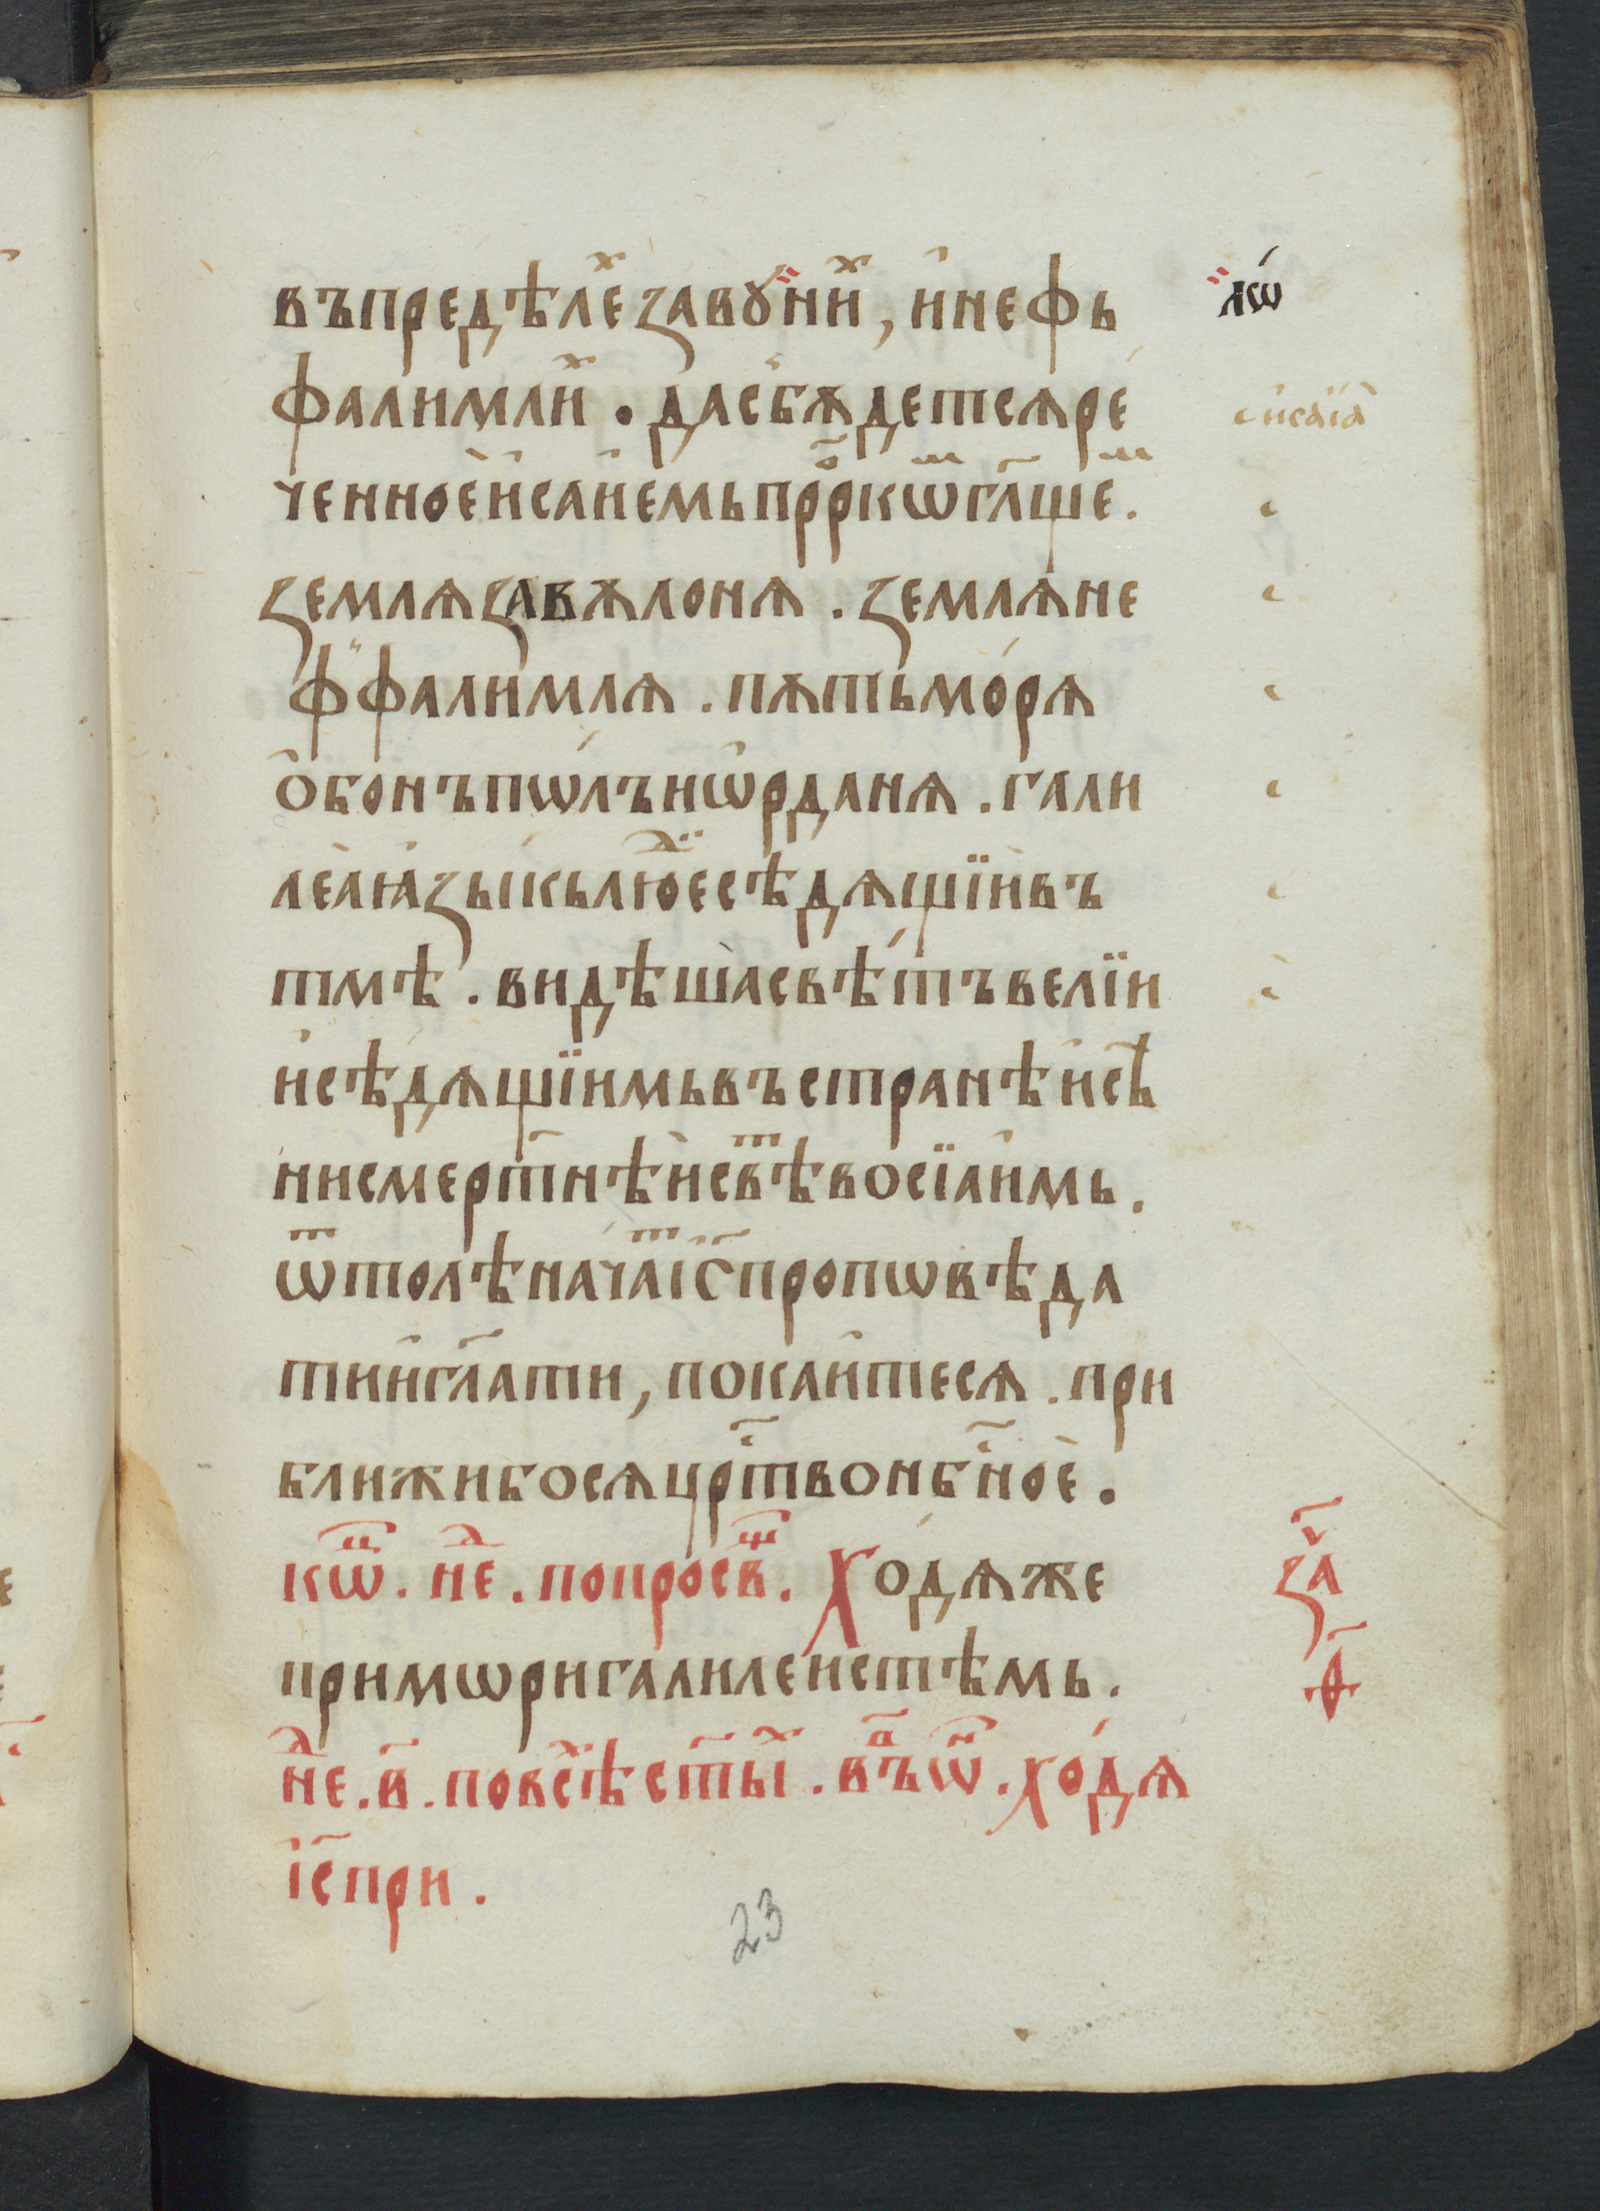 въпредѣлеⷯ завꙋ̋ниⷯ, инефь
лѡ
фалимлиⷯ . дасбѫдетсѧре
исаїа
ченноеисаиемьпрⷪ҇ркѡⷨгл҃щеⷨ .
землѧзавѫлонѧ . землѧне
ффалимлѧ . пѫтьморѧ
обонъпѡлъиѡрданѧ . гали
леꙗꙗзыкьлюⷣесѣдѧщїивъ
тмѣ . видѣшасвѣтъвелїи
исѣдѧщїимьвъстранѣисѣ
нисмерт҃нѣисвѣⷮвосїаимь .
ѿтолѣначаⷮіс҃пропѡвѣда
тииглати, покаитесѧ . при
ближибосѧцр҇твонб҇ное .
кѡⷩ҇ . неⷣ . попросвⷳ . Ходѧже
за҇
примѡригалилеистѣмь .
ѳ҃
неⷣ . в҃ . повсѣⷯст҃ыⷯ . въⷩ҇ѡⷩ҇ . ходѧ
іс҃при .
23